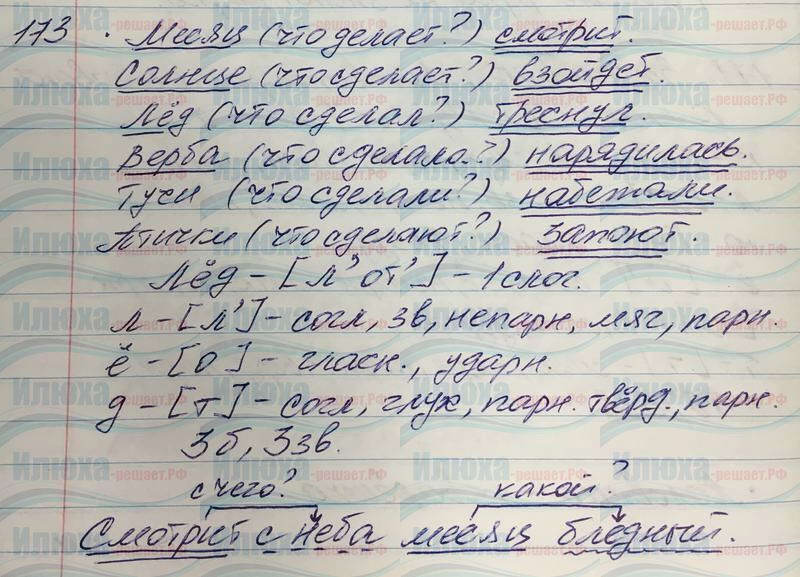 173. Месяц (что делает?) смотрит.
Солнце (что сделает?) взойдёт.
Лёд (что сделал?) треснул.
Верба (что сделала?) нарядилась.
Тучи (что сделали?) набежали.
Птички (что сделают?) запоют.
Лёд - [л' от'] - 1 слог.
л - [л'] - согл, зв, непарн, мяг, парн.
ё - [о] - гласн., ударн.
д - [т] - согл, глух, парн. твёрд., парн.
3б, 3зв.
с чего? какой?
Смотрит с неба месяц бледный.